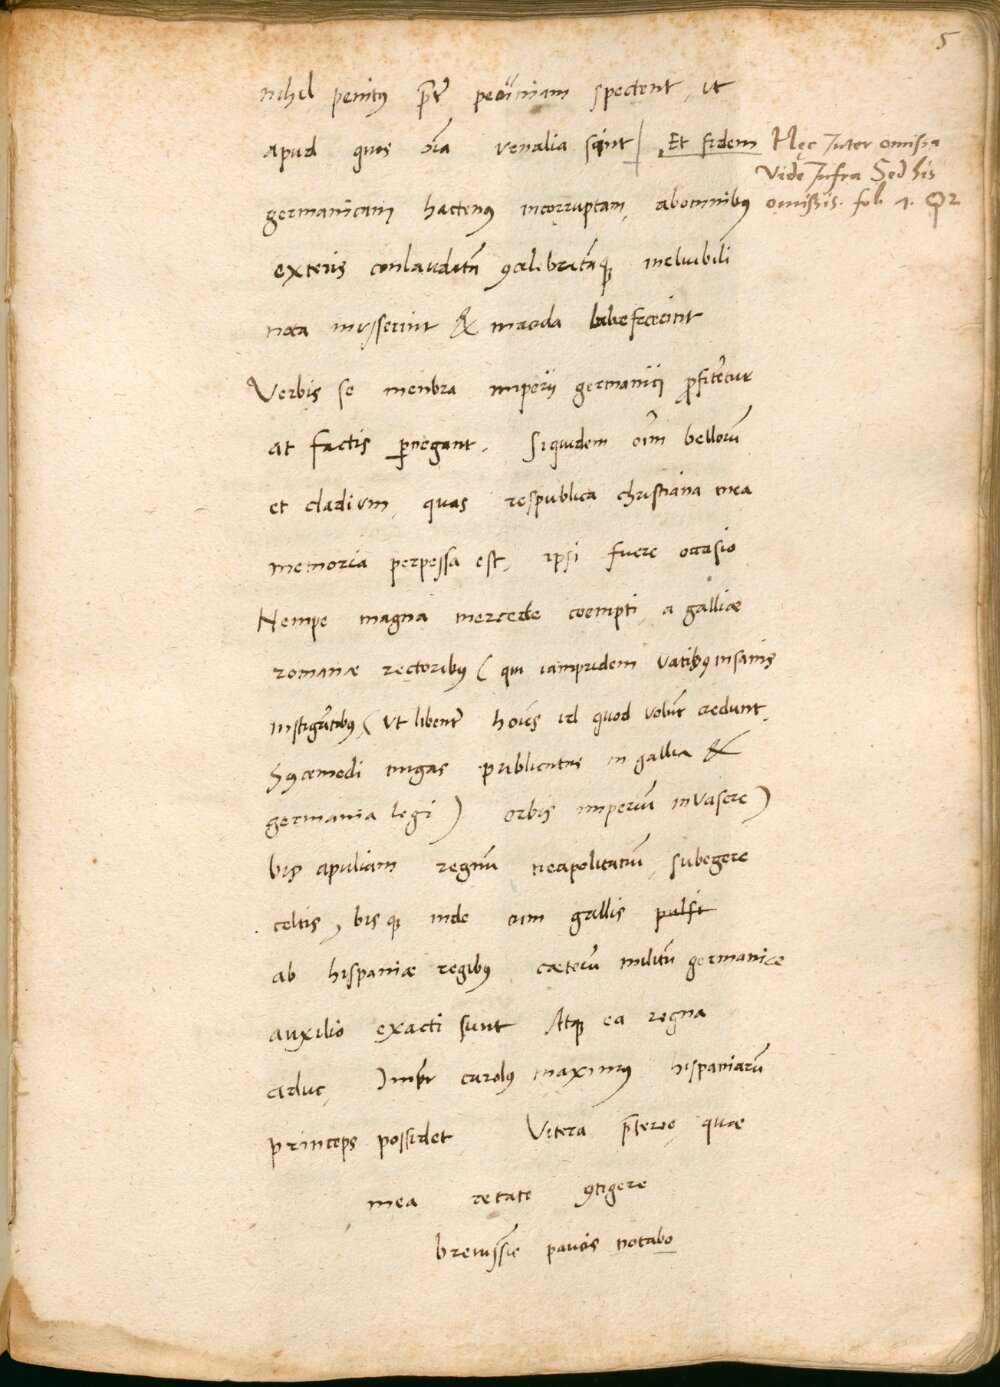 5
nihil penitus p̄t pecūniam spectent, ut
apud quos oīa venalia sint| Et fidem
Hęc Inter omissa
Vide Infra Sed his
omissis. fol. 1.
germanicam hactenus incorruptam, ab omnibus
exteris conlaudatā ꝯcelibratāqꝫ ineluibili
nota inusserint & macula labefecerint
Verbis se menbra imperij germanici ꝓfitētur
at factis ꝑnegant. Siquidem oīm bellorū
et cladium, quas respublica christiana mea
memoria perpessa est, ipsi fuere occasio
Nempe magna mercede coempti, a galliæ
romanæ rectoribus ( qui iampridem vatibus insanis
instigātibus, ( ut libentēr hoīes id quod volūt credunt,
huꝯcemodi nugas publicitus in gallia &
germania legi ) orbis imperiū invasere )
bis apuliam regnū neapolitanū, subegere
celtis, bis qꝫ inde cum gallis pulsi
ab hispaniæ regibus cæterū militū germanicæ
auxilio exacti sunt Atqꝫ ea regna
aduc, Impr̄ carolus maximus hispaniarū
princeps possidet Vitera p̄terea, quæ
mea ætate ꝯtigere
breuissīe paucis notabo